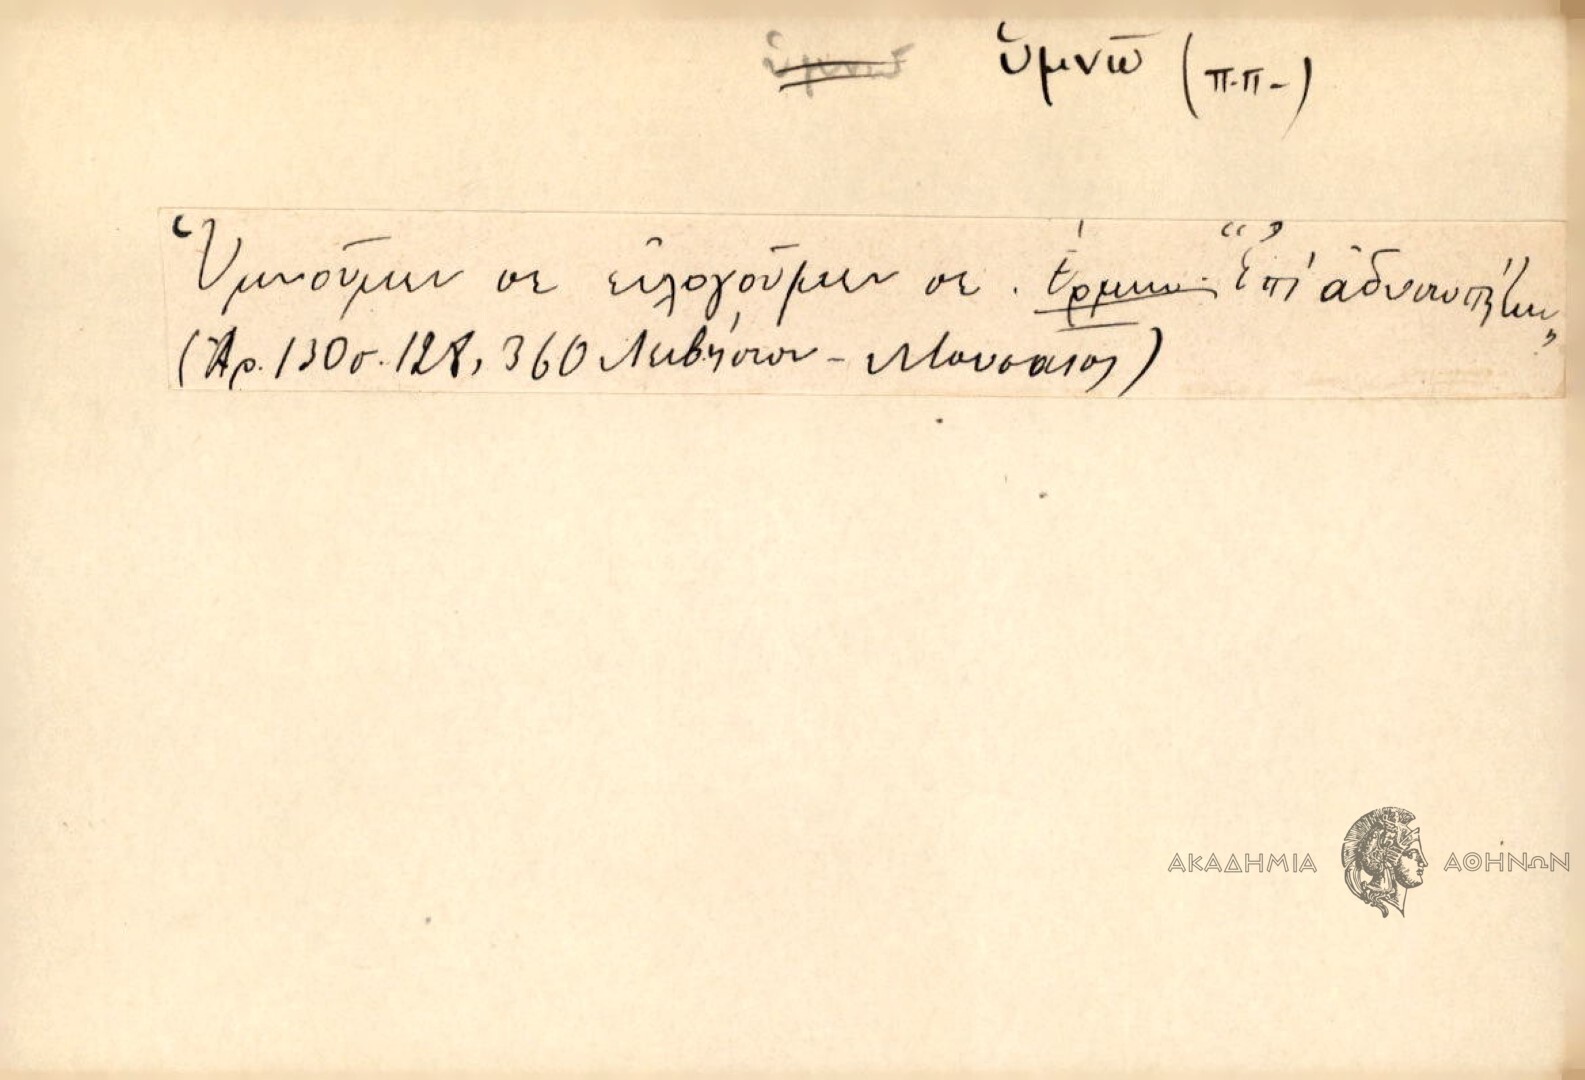 ὑμνῶ ὑμνῶ (π.π-)
Ὑμνοῦμεν σε εὐλογοῦμεν σε. Ἑρμην. "Ἐπὶ ἀδυνατούντων"
(Ἀρ. 130 σ. 128, 360 Λειβήσιον - Μουσαῖος)
ΑΚΑΔΗΜΙΑ ΑΘΗΝΩΝ